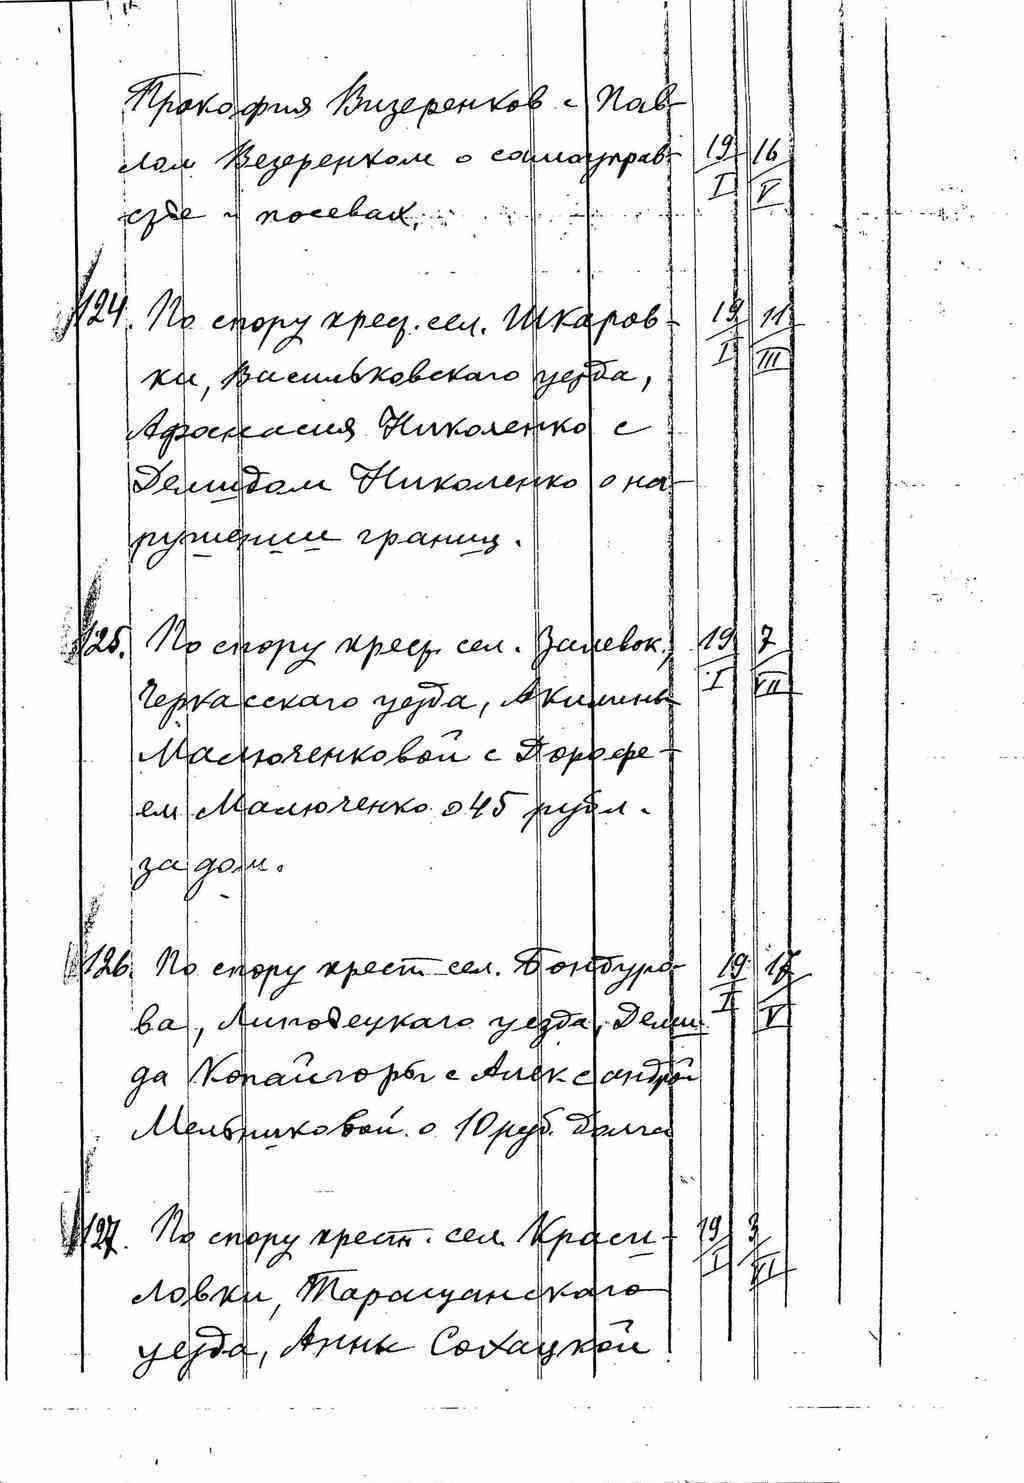 Прокофия Визеренков с Пав-
лом Везеренком о самоуправ-
стве и посевах. 19/I 16/V
124. По спору крес. сел. Шкаров- 19/I 11/III
ки, Васильковскаго уезда,
Афанасия Николенко с
Демидом Николенко о на-
рушении границ.
125. По спору крес. сел. Залевок, 19/I 7/VII
Черкасскаго уезда, Акилины
Малюченковой с Дорофе-
ем Малюченко о 45 рубл.
за дом.
126. По спору крест. сел. Бондуро- 19/I 17/V
ва, Липовецкаго уезда, Деми-
да Копайгоры с Александрой
Мельниковой о 10 руб. долга
127. По спору крестн. сел. Краси- 19/I 3/VI
ловки, Таращанскаго
уезда, Анны Сохацкой